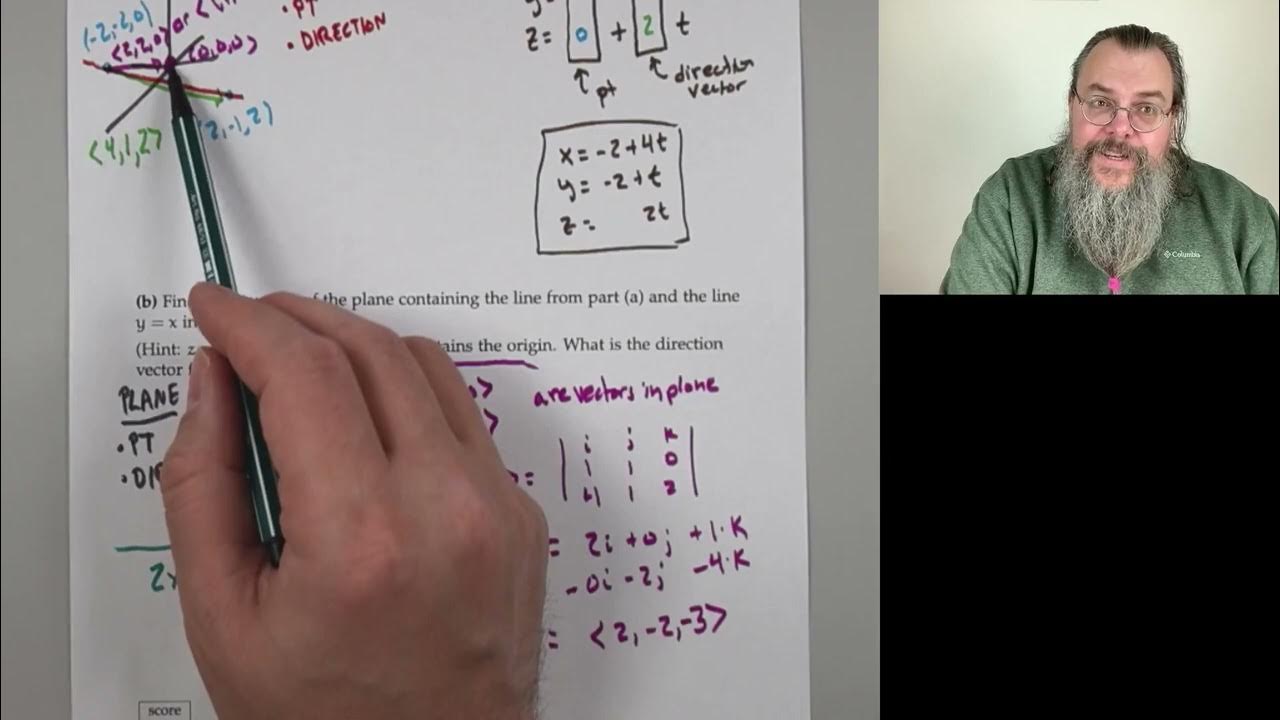 (-2,-2,0)
<2,2,0> or <1,1
<0,0,0>
• PT
• DIRECTION
<4,1,2>
(2,-1,2)
z= 0 + 2 t
pt
direction
vector
x = -2+4t
y = -2+t
z = 2t
(b) Fin the plane containing the line from part (a) and the line
y = x in
(Hint: z ains the origin. What is the direction
vector
PLANE
• PT
are vectors in plane
i j k
1 1 0
4 1 2
= 2i +0j +1·K
-0i -2j -4·K
= <2,-2,-3>
2x
score
Columbia